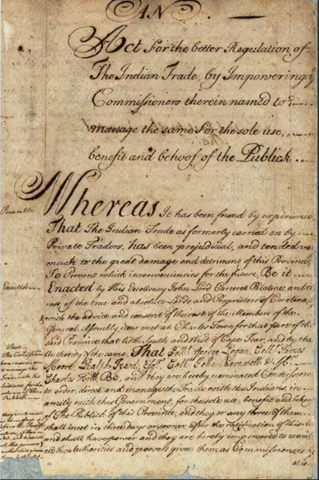 AN
Act for the better Regulation of
The Indian Trade, by Impowering
Commissioners therein named to
manage the same for the sole use,
benefit and behoof of the Publick
Whereas It has been found by experience
That The Indian Trade as formerly carried on by
Private Traders, has been prejudicial, and tended
much to the great damage and detriment of this Province
To Prevent which inconveniencies for the future, Be it
Enacted by his Excellency John Lord Carteret Palatine and
rest of the true and absolute Lords and Proprietors of Carolina
with the advice and consent of the rest of the Members of the
General Assembly now met at Charles Town for that part of the
said Province that lieth South and West of Cape Fear, and by the
Authority of the same, That George Logan
John Barnwell
Charles Hill Be, and they are hereby nominated Commissioners
to order, direct and manage the Trade with the Indians, in
amity with this Government, for the sole use, benefit and behoof
of the Publick of this Province, and they or any three of them
shall meet in three days or sooner after the ratification of this Act
and shall have power and they are hereby impowered to
all the authorities and powers given them as Commissioners by